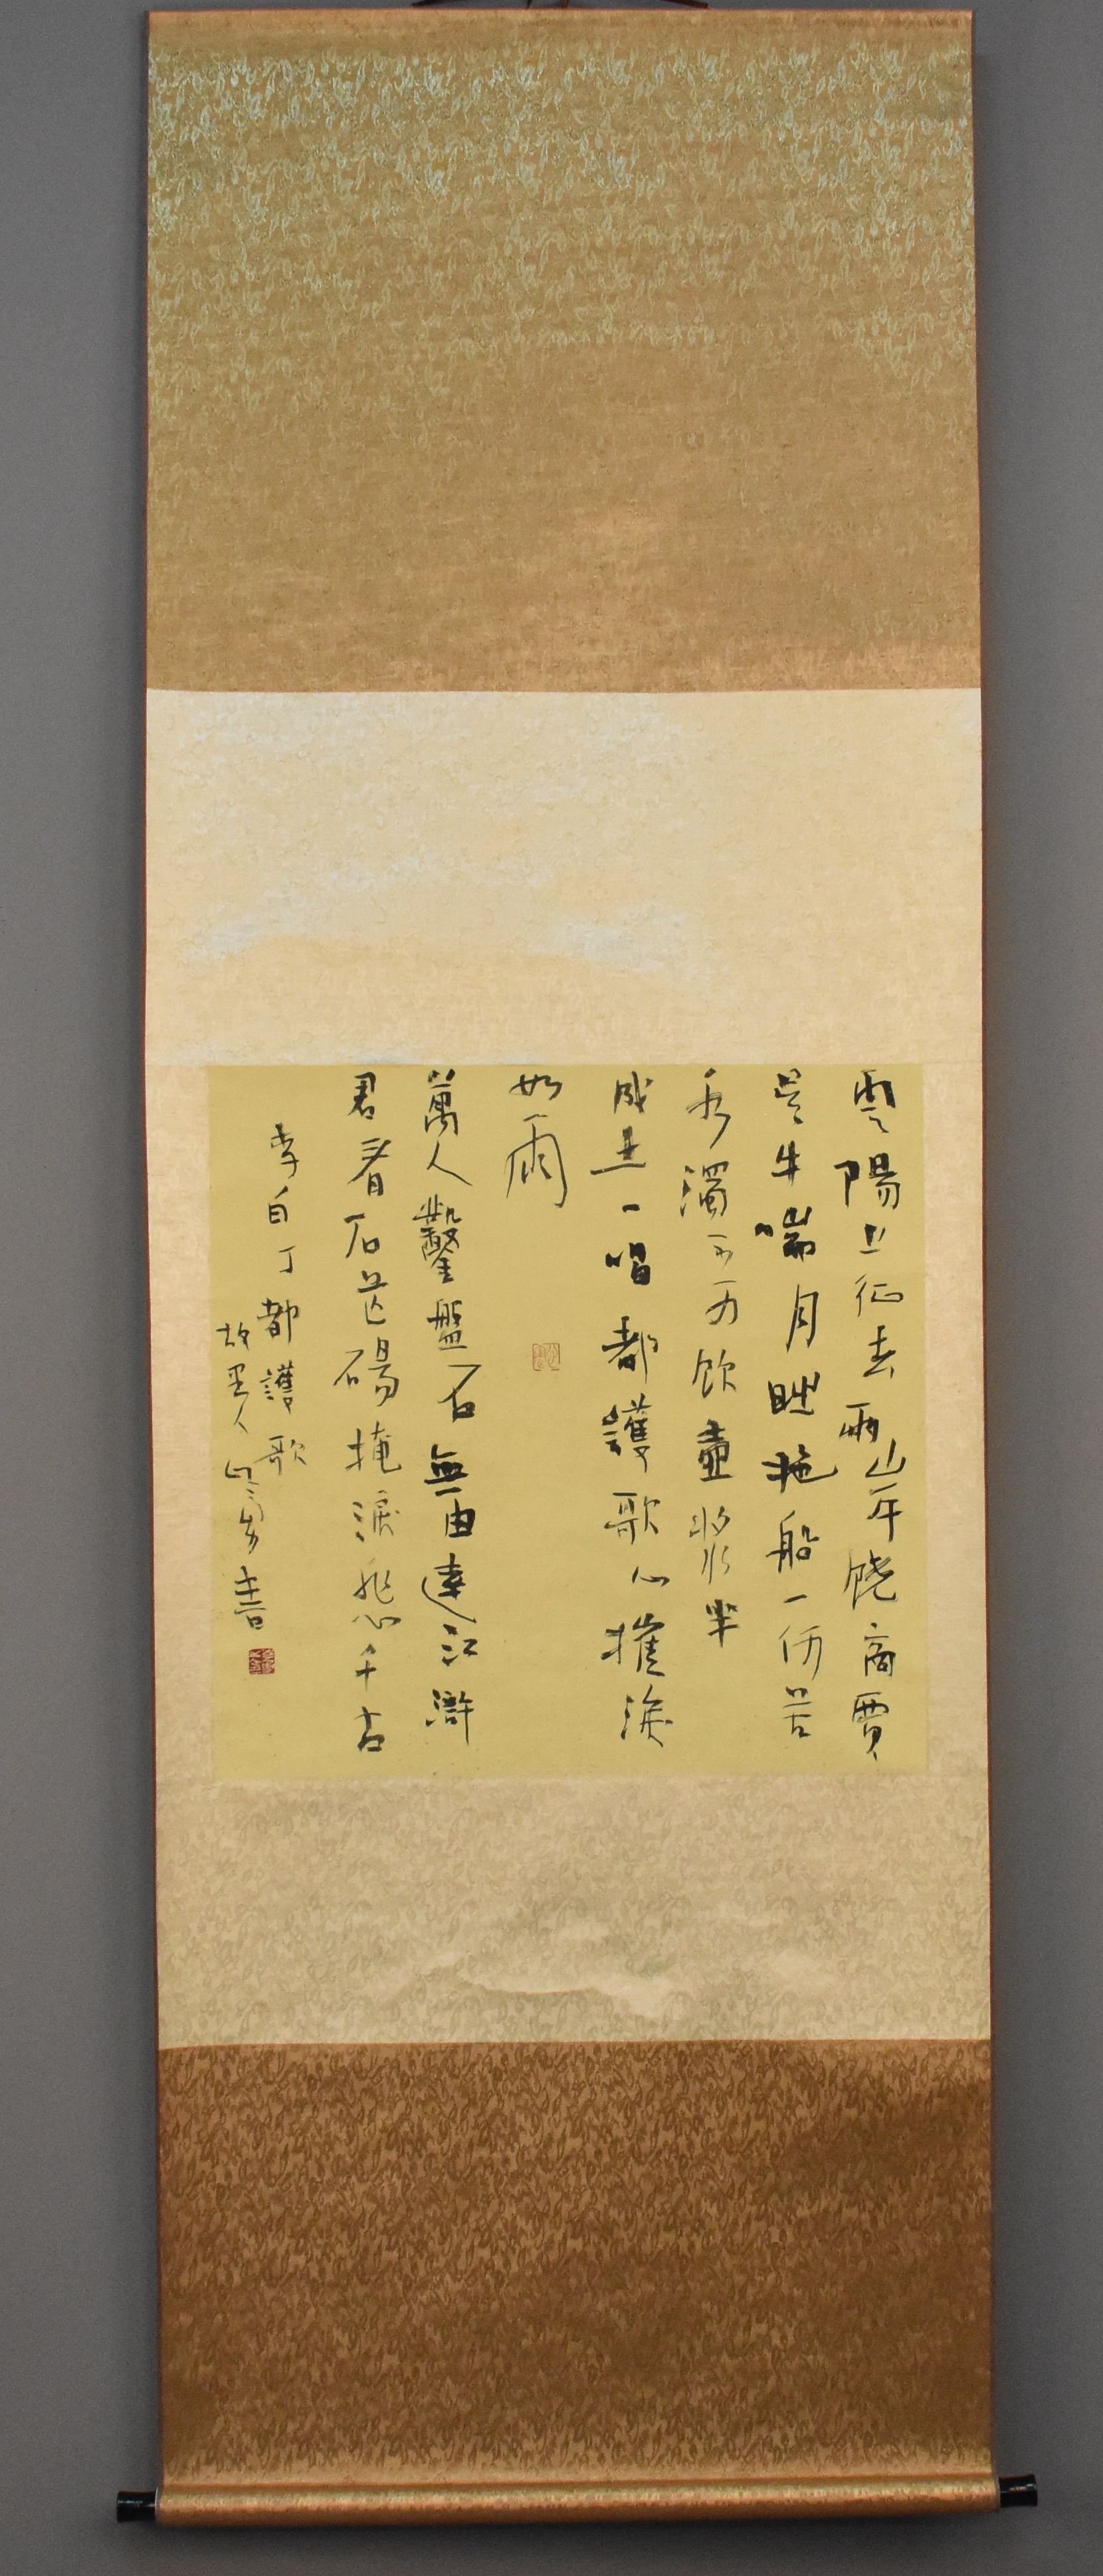 雲陽上征去兩岸饒商賈
吳牛喘月時拖船一何苦
水濁不可飲壺漿半
成土一唱都護歌心摧淚
如雨
萬人鑿盤石無由達江滸
君看石芒碭掩淚悲千古
李白丁都護歌
故里人書